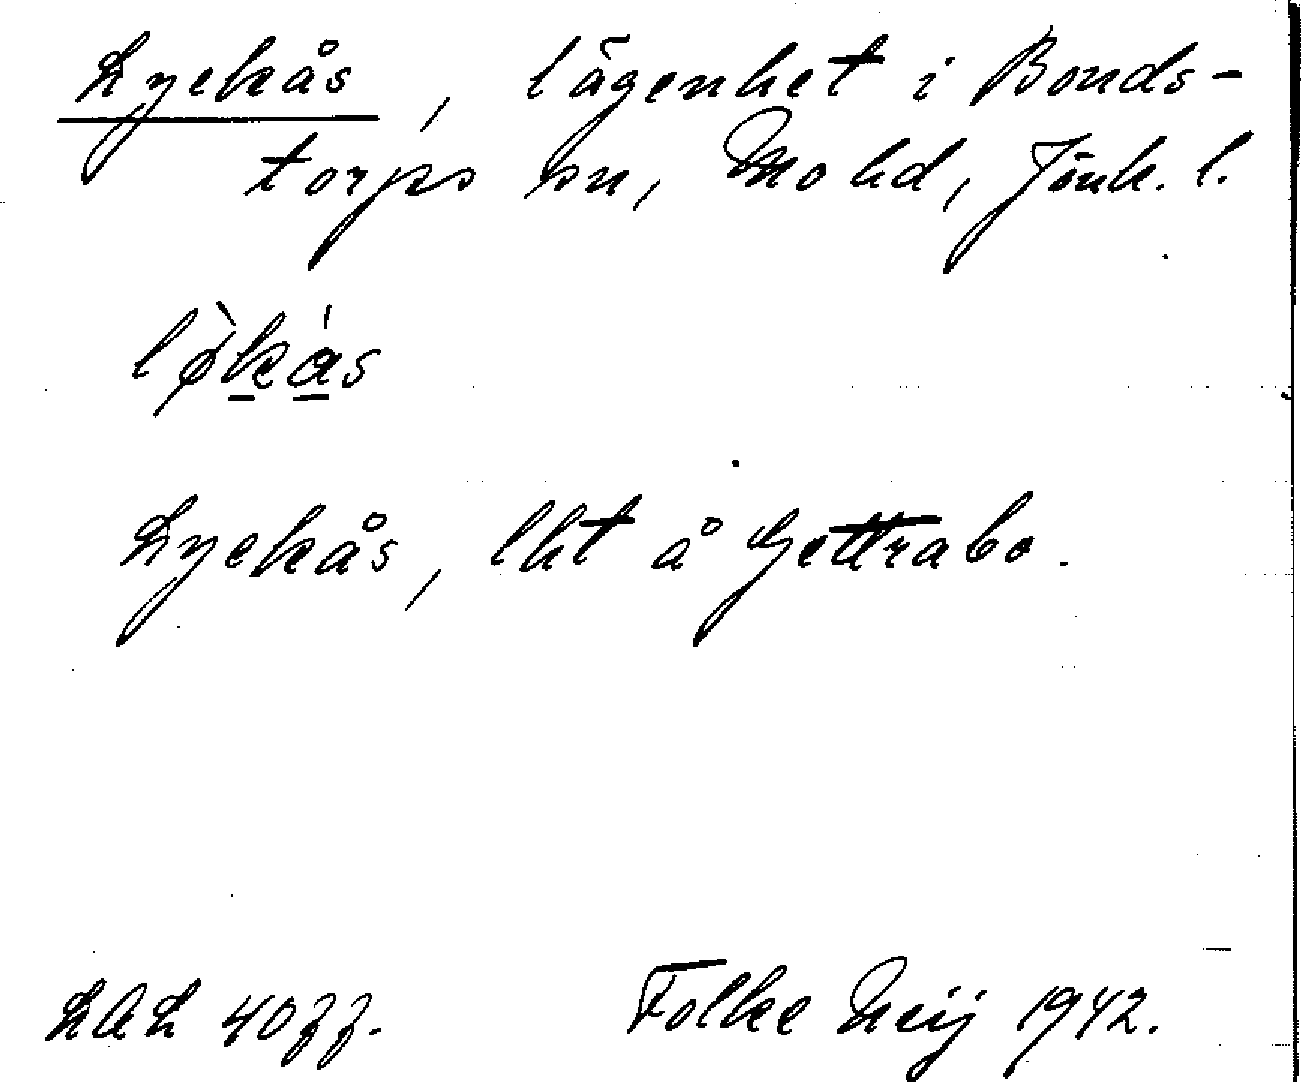 Lyckås, lägenhet i Bonds-
torps sn, Mo hd, Jönk. l.
lø̀kás
Lyckås, lht å Gettrabo.
LAL 40 ff.
Folke Neij 1942.